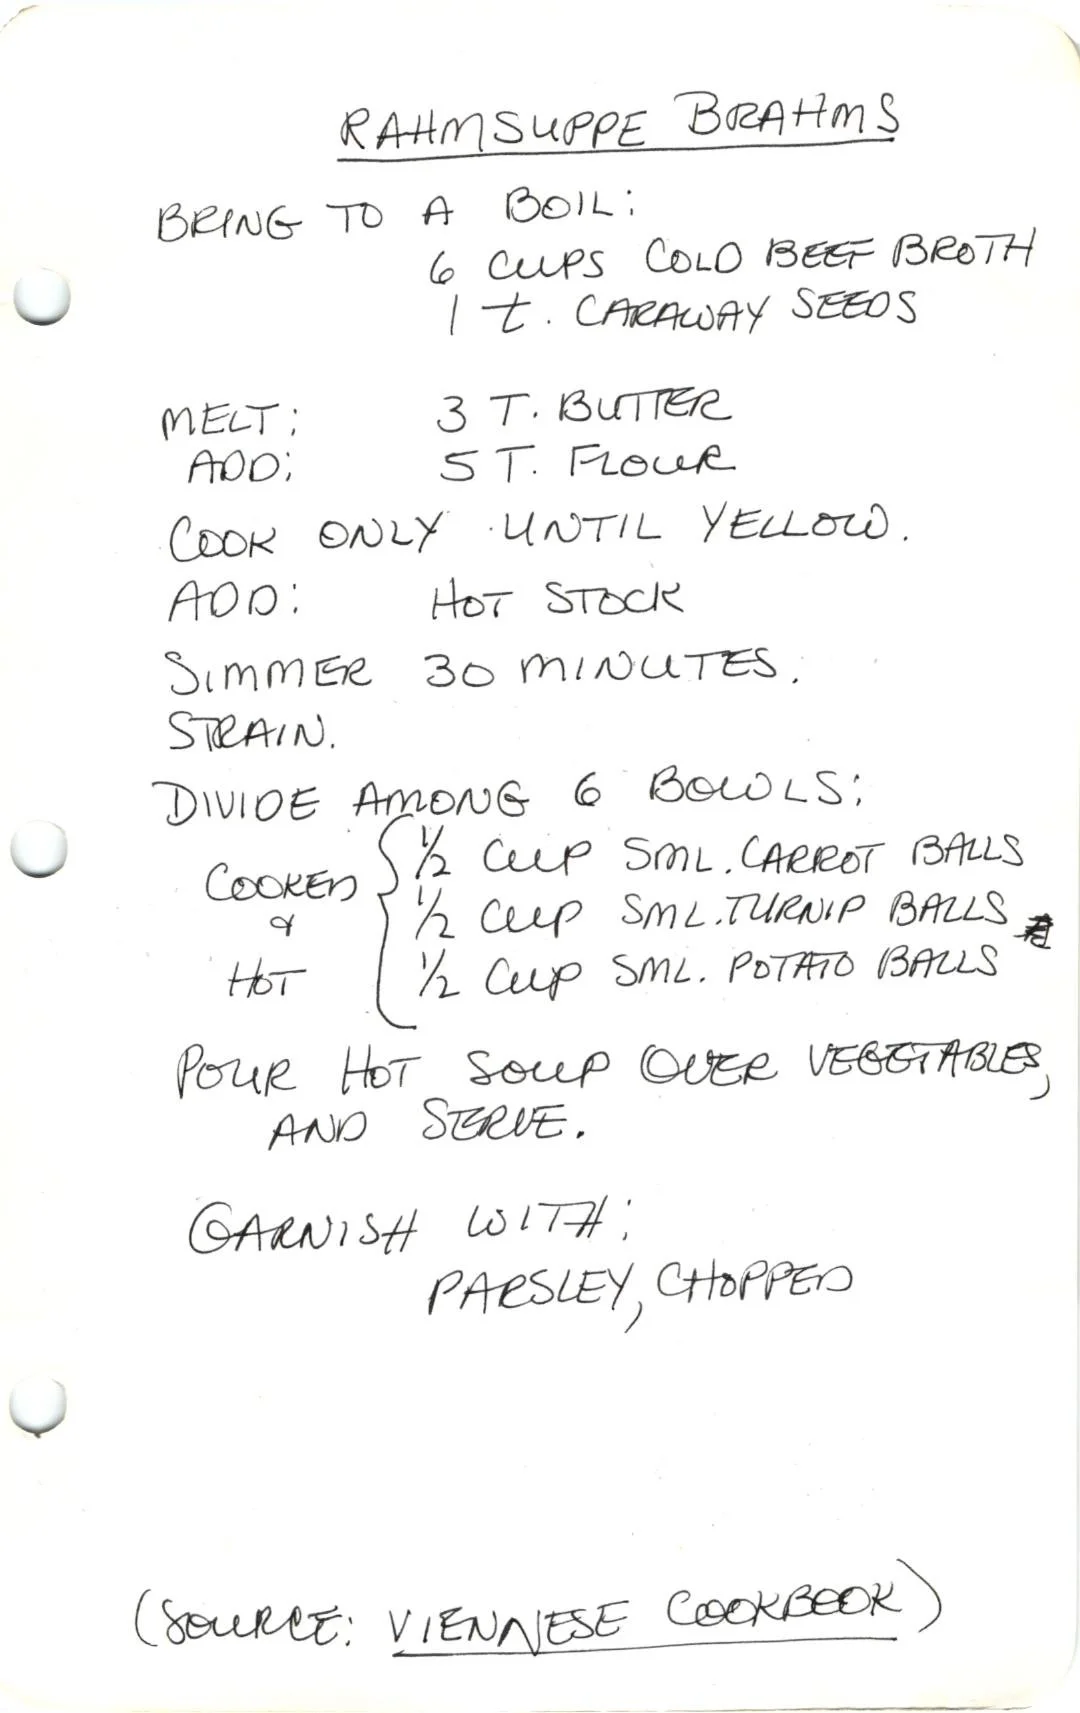 RAHMSUPPE BRAHMS
BRING TO A BOIL:
6 CUPS COLD BEEF BROTH
1 t. CARAWAY SEEDS
MELT: 3 T. BUTTER
ADD: 5 T. FLOUR
COOK ONLY UNTIL YELLOW.
ADD: HOT STOCK
SIMMER 30 MINUTES.
STRAIN.
DIVIDE AMONG 6 BOWLS:
½ CUP SML. CARROT BALLS
COOKED
½ CUP SML. TURNIP BALLS
&
HOT ½ CUP SML. POTATO BALLS
POUR HOT SOUP OVER VEGETABLES,
AND SERVE.
GARNISH WITH:
PARSLEY, CHOPPED
(SOURCE: VIENNESE COOKBOOK)